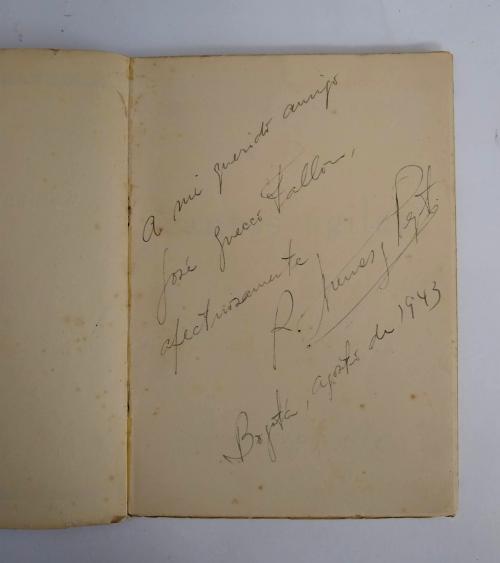 A mi querido amigo
José Grecco Fallon,
afectuosamente
R.
Bogotá, agosto de 1943